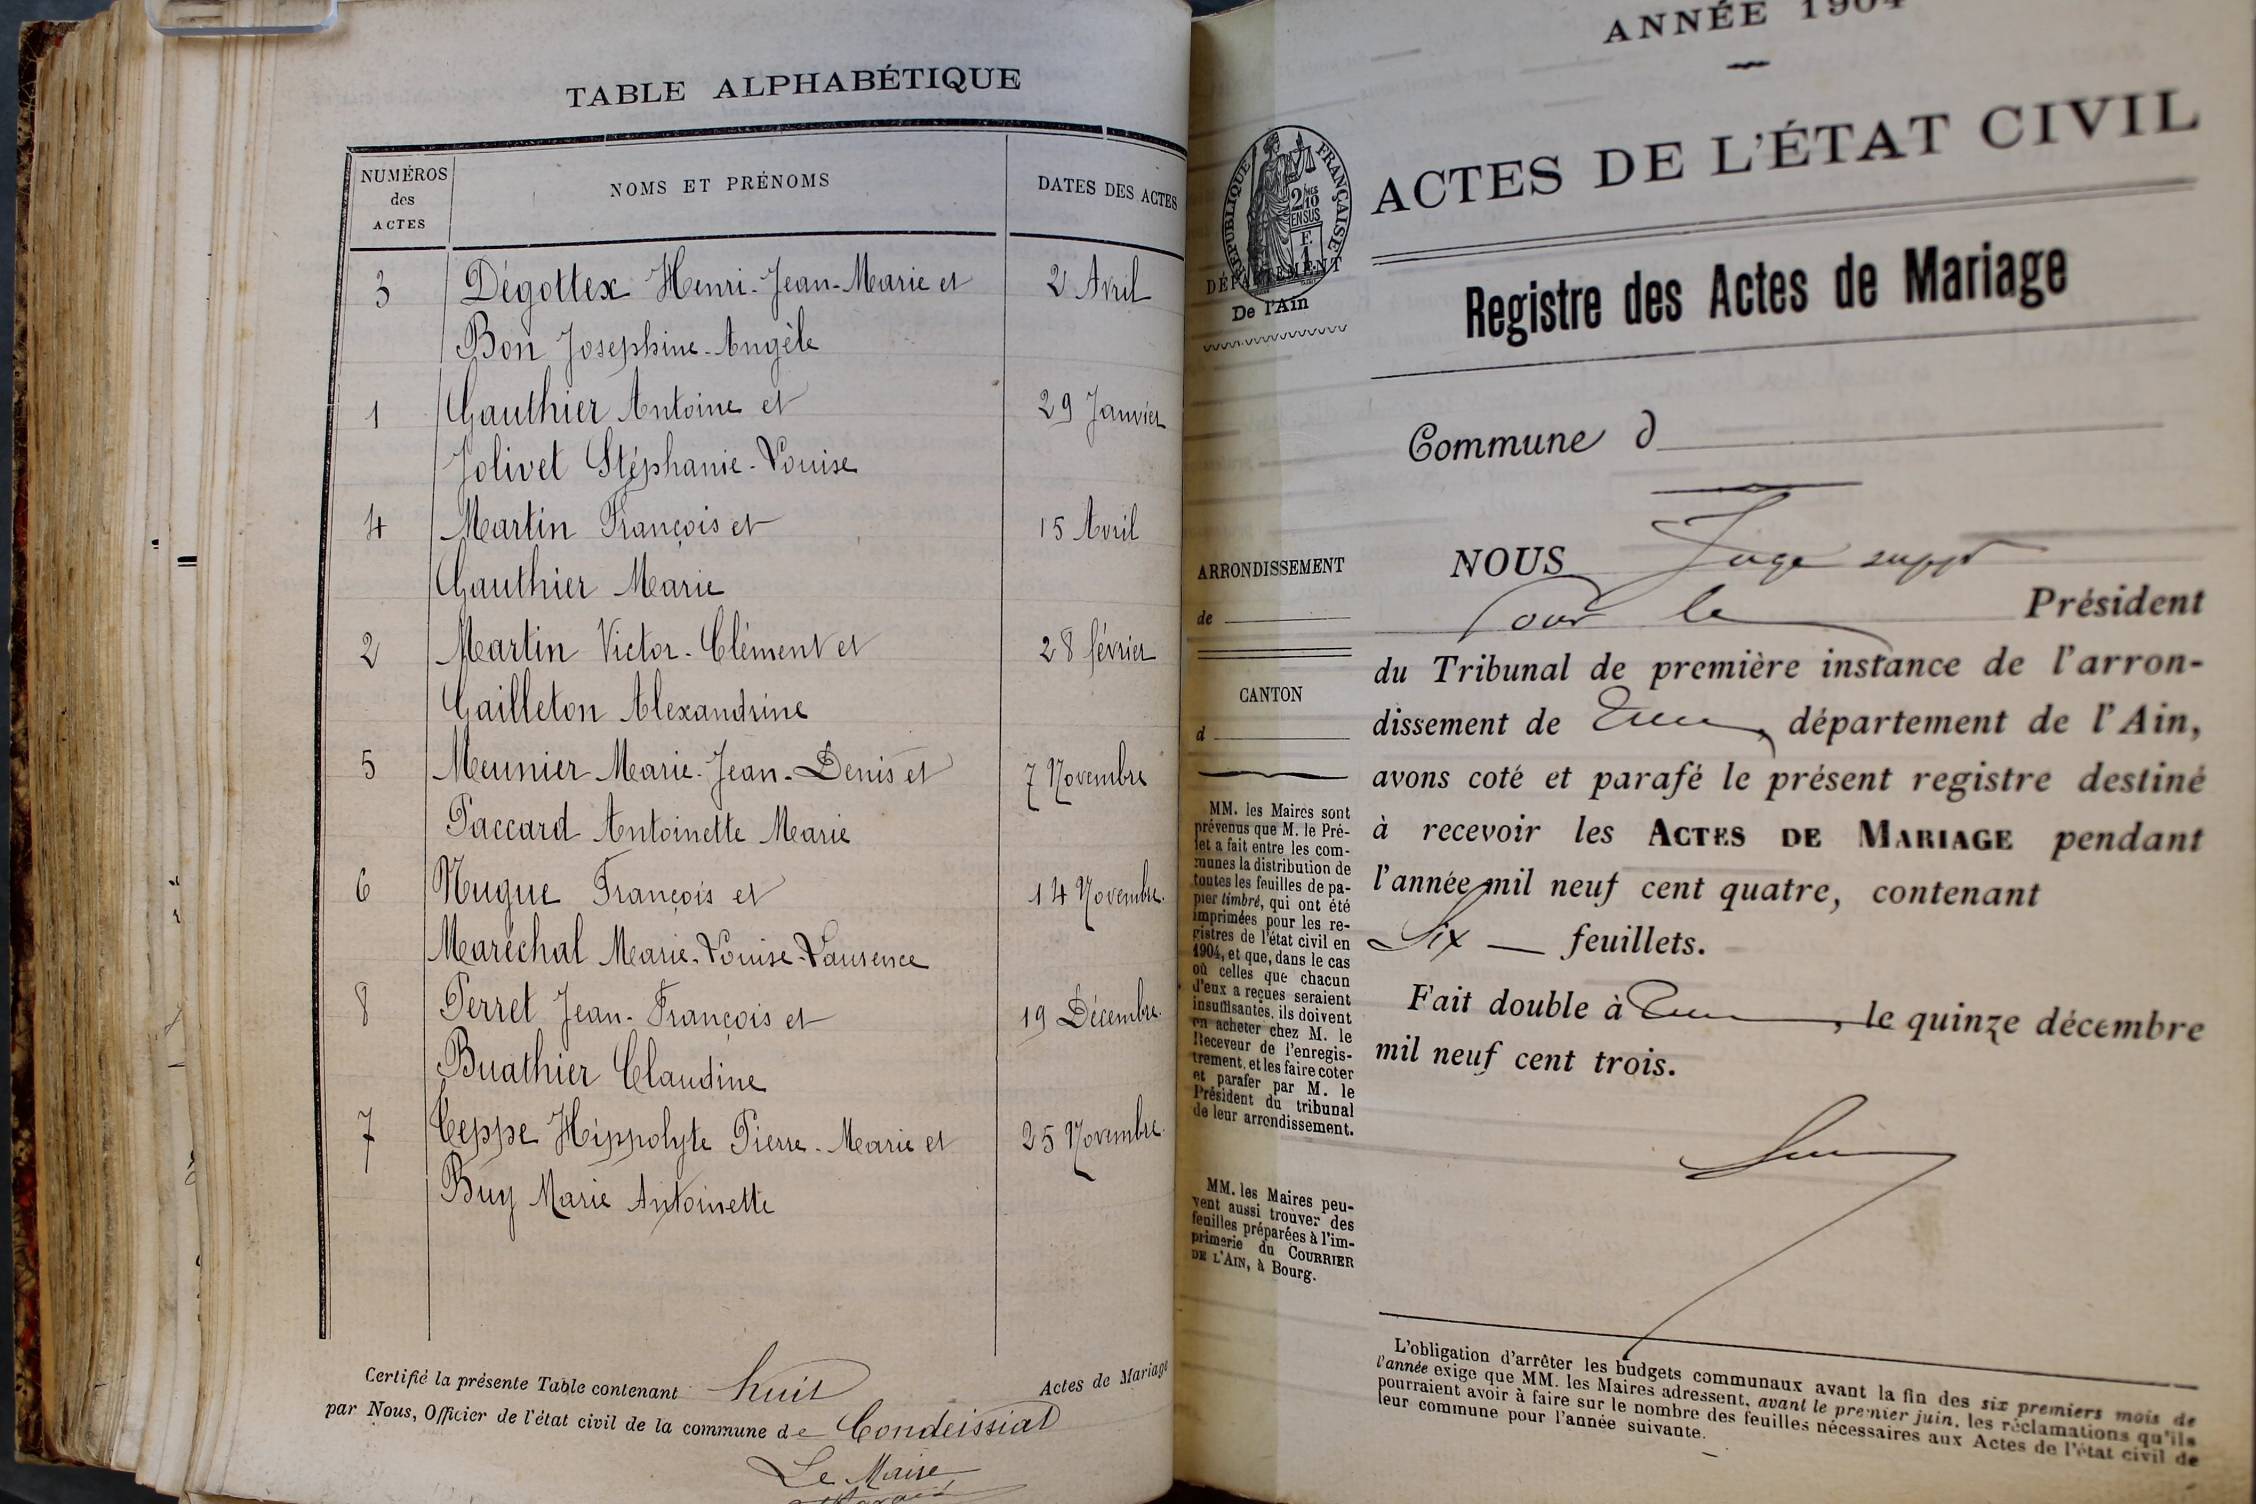 TABLE ALPHABÉTIQUE
NUMÉROS des ACTES
NOMS ET PRÉNOMS
DATES DES ACTES
3 Dégottex Henri-Jean-Marie et 2 Avril
Bon Josephine-Angèle
1 Gauthier Antoine et 29 Janvier
Jolivet Stéphanie-Louise
4 Martin François et 15 Avril
Gauthier Marie
2 Martin Victor-Clément et 28 février
Gailleton Alexandrine
5 Meunier Marie-Jean-Denis et 7 Novembre
Paccard Antoinette Marie
6 Nugue François et 14 Novembre.
Maréchal Marie-Louise-Laurence
8 Perret Jean-François et 19 Décembre.
Buathier Claudine
7 Ceppe Hippolyte Pierre-Marie et 25 Novembre.
Buy Marie Antoinette
Certifié la présente Table contenant huit Actes de Mariage
par Nous, Officier de l'état civil de la commune de Condeissiat
Le Maire
ANNÉE 1904
ACTES DE L'ÉTAT CIVIL
RÉPUBLIQUE FRANÇAISE
2/10 MES
EN SUS
F.
1.
DÉPARTEMENT
De l'Ain
Registre des Actes de Mariage
Commune d
ARRONDISSEMENT
de
CANTON
d
MM. les Maires sont
prévenus que M. le Pré-
fet a fait entre les com-
munes la distribution de
toutes les feuilles de pa-
pier timbré, qui ont été
imprimées pour les re-
gistres de l'état civil en
1904, et que, dans le cas
où celles que chacun
d'eux a reçues seraient
insuffisantes, ils doivent
en acheter chez M. le
Receveur de l'enregis-
trement, et les faire coter
et parafer par M. le
Président du tribunal
de leur arrondissement.
MM. les Maires peu-
vent aussi trouver des
feuilles préparées à l'im-
primerie du COURRIER
DE L'AIN, à Bourg.
NOUS Juge suppt
Pour le Président
du Tribunal de première instance de l'arron-
dissement de département de l'Ain,
avons coté et parafé le présent registre destiné
à recevoir les ACTES DE MARIAGE pendant
l'année mil neuf cent quatre, contenant
Six — feuillets.
Fait double à , le quinze décembre
mil neuf cent trois.
L'obligation d'arrêter les budgets communaux avant la fin des six premiers mois de
l'année exige que MM. les Maires adressent, avant le premier juin, les réclamations qu'ils
pourraient avoir à faire sur le nombre des feuilles nécessaires aux Actes de l'état civil de
leur commune pour l'année suivante.